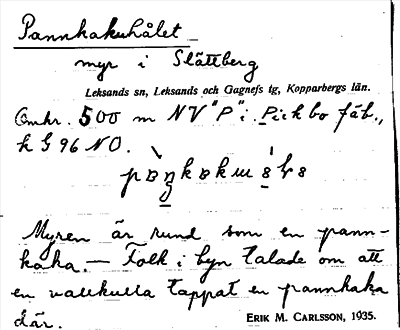 Pannkakuhålet
myr i Slättberg
Leksands sn, Leksands och Gagnefs tg, Kopparbergs län.
Omkr. 500 m NV "P" i Pickbo fäb.,
k G 96 NO.
Myren är rund som en pann-
kaka. — Folk i byn talade om att
en vallkulla tappat en pannkaka
där.
ERIK M. CARLSSON, 1935.